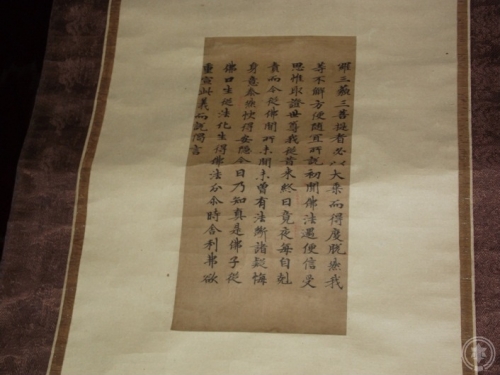 羅三藐三菩提者必以大乘而得度脫然我
等不解方便隨宜所說初聞佛法遇便信受
思惟取證世尊我從昔來終日竟夜每自剋
責而今從佛聞所未聞未曾有法斷諸疑悔
身意泰然快得安隱今日乃知真是佛子從
佛口生從法化生得佛法分尒時舍利弗欲
重宣此義而說偈言